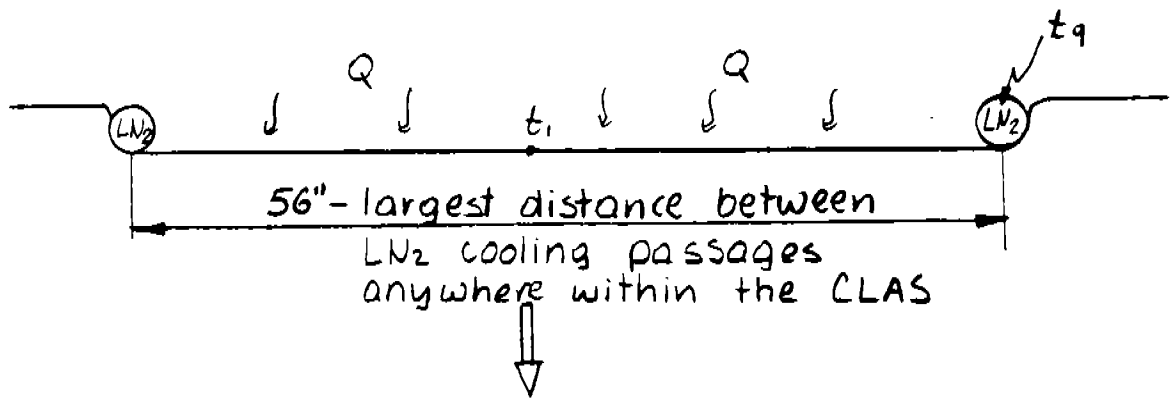 t9
Q Q
LN2 t1 LN2
56"- largest distance between
LN2 cooling passages
anywhere within the CLAS